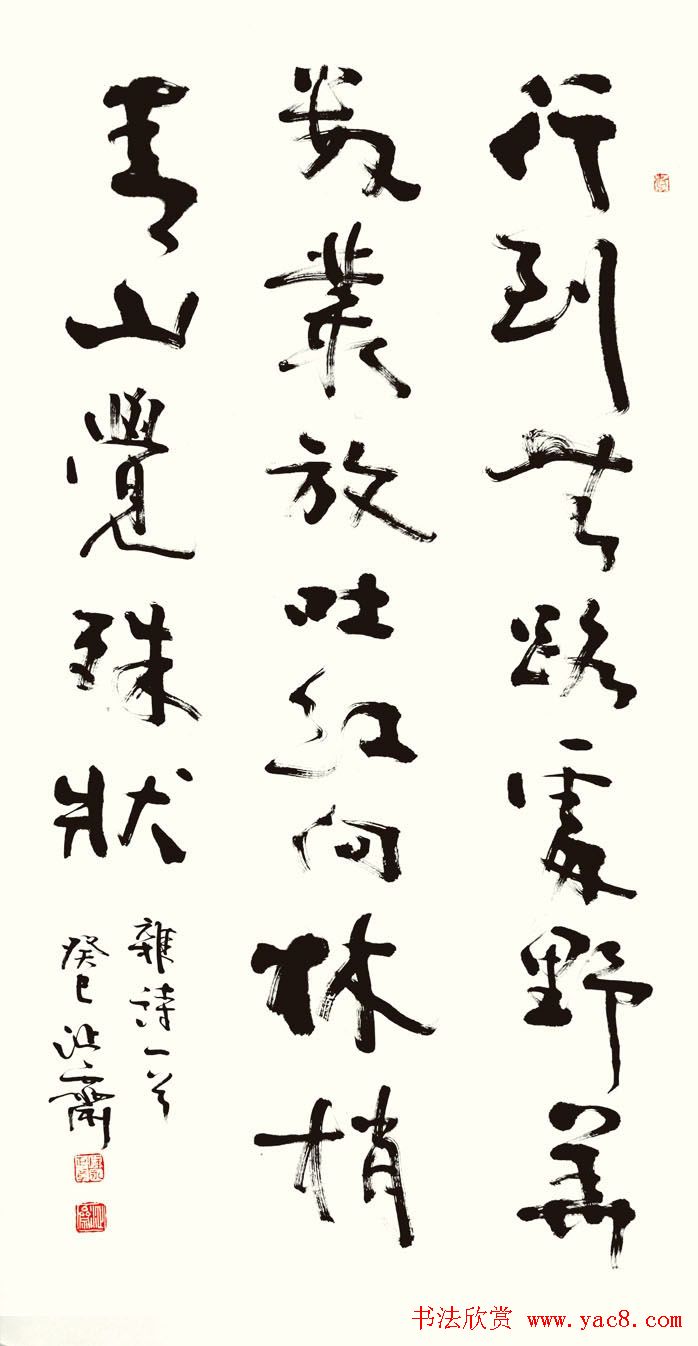 行到無路處野華
數叢放吐紅向林梢
青山覺殊狀
雜詩一首
癸巳沚齋
书法欣赏 www.yac8.com